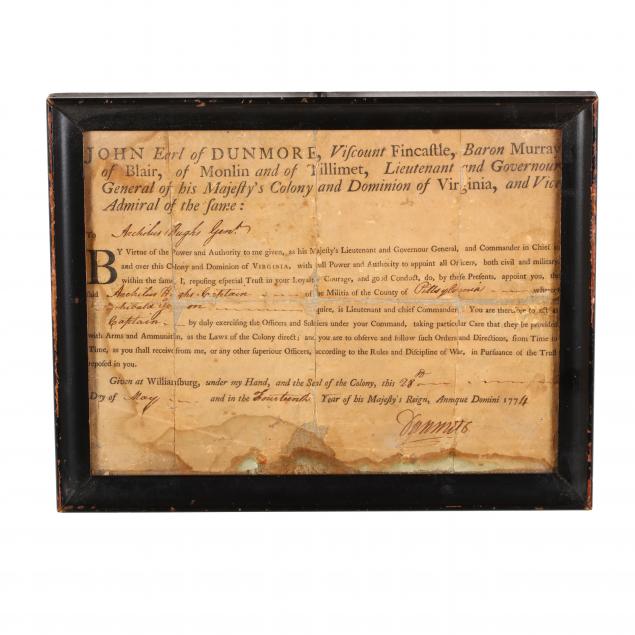 JOHN Earl of DUNMORE, Viscount Fincastle, Baron Murray
of Blair, of Monlin and of Tillimet, Lieutenant and Governour
General of his Majesty's Colony and Dominion of Virginia, and Vice
Admiral of the same:
To Archilus Hughs Gent.
BY Virtue of the Power and Authority to me given, as his Majesty's Lieutenant and Governour General, and Commander in Chief in
and over this Colony and Dominion of VIRGINIA, with full Power and Authority to appoint all Officers, both civil and military,
within the same, I, reposing especial Trust in your Loyalty, Courage, and good Conduct, do, by these Presents, appoint you, the
said Archelus Hughs Captain of the Militia of the County of Pittsylvania whereof
Esquire, is Lieutenant and chief Commander: You are therefore to act as
Captain by duly exercising the Officers and Soldiers under your Command, taking particular Care that they be provided
with Arms and Ammunition, as the Laws of the Colony direct; and you are to observe and follow such Orders and Directions, from Time to
Time, as you shall receive from me, or any other superiour Officers, according to the Rules and Discipline of War, in Pursuance of the Trust
reposed in you.
Given at Williamsburg, under my Hand, and the Seal of the Colony, this 28th
Day of May and in the Fourteenth Year of his Majesty's Reign, Annoque Domini 1774
Dunmore